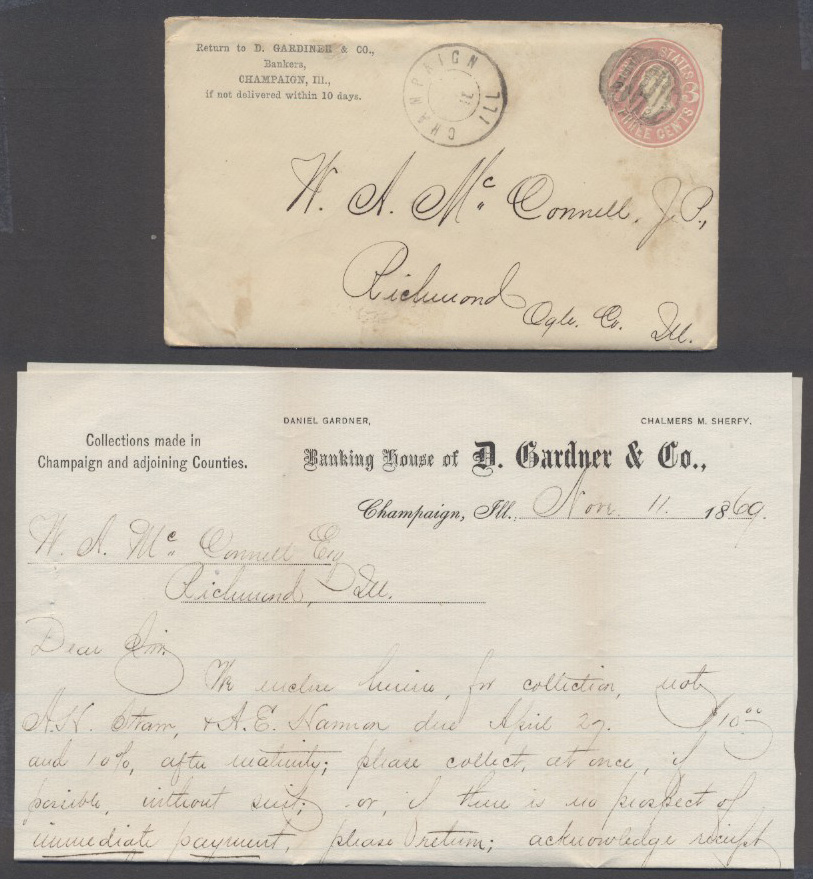 Return to D. GARDINER & CO.,
Bankers,
CHAMPAIGN, Ill.,
if not delivered within 10 days.
CHAMPAIGN ILL
11
STATES
THREE CENTS
3
W. A. McConnell, J.P.,
Richmond
Ogle. Co. Ill.
DANIEL GARDNER,
CHALMERS M. SHERFY.
Collections made in
Champaign and adjoining Counties.
Banking House of D. Gardner & Co.,
Champaign, Ill., Nov. 11. 1869.
W. A. McConnell Esq
Richmond, Ill.
Dear Sir.
We enclose herein, for collection, note
A.H. & A.E. Hamron due April 27. $10.00
and 10%, after maturity; please collect, at once, if
possible, without suit; or, if there is no prospect of
immediate payment, please return; acknowledge receipt